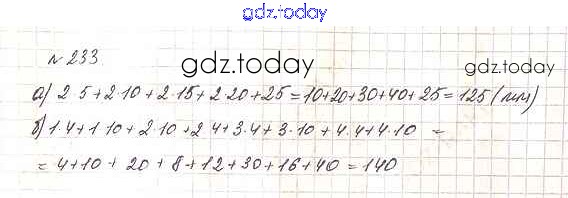 gdz.today
№ 233
gdz.today
gdz.today
а) 2·5+2·10+2·15+2·20+25=10+20+30+40+25=125 (мм)
б) 1·4+1·10+2·10+2·4+3·4+3·10+4·4+4·10 =
= 4+10+20+8+12+30+16+40=140